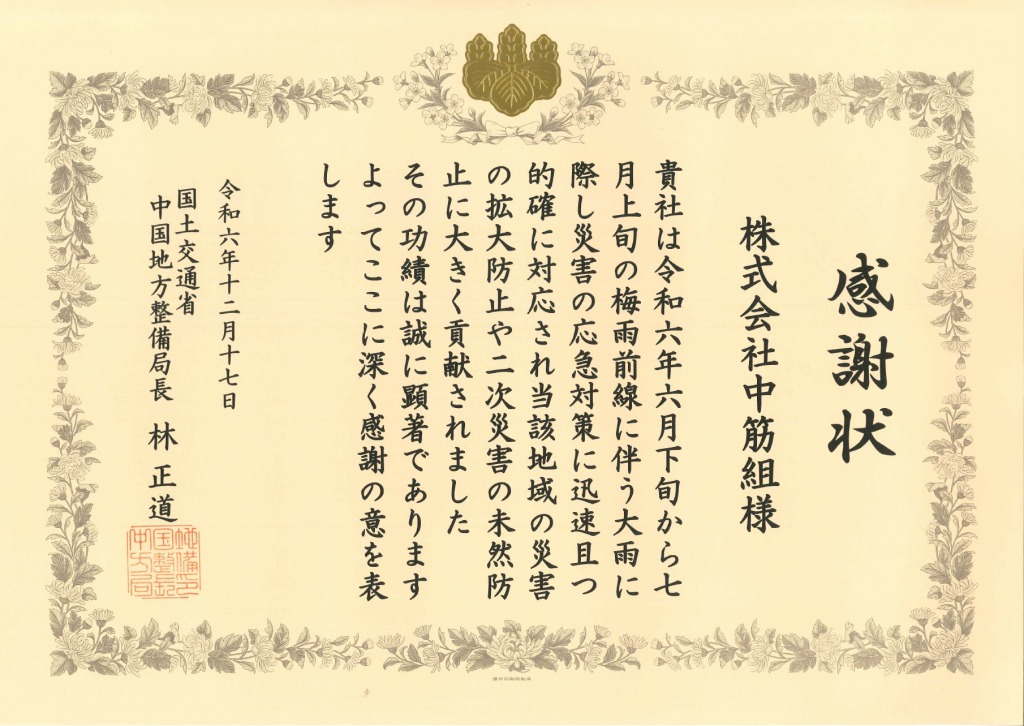 感謝状
株式会社中筋組様
貴社は令和六年六月下旬から七
月上旬の梅雨前線に伴う大雨に
際し災害の応急対策に迅速且つ
的確に対応され当該地域の災害
の拡大防止や二次災害の未然防
止に大きく貢献されました
その功績は誠に顕著であります
よってここに深く感謝の意を表
します
令和六年十二月十七日
国土交通省
中国地方整備局長 林正道